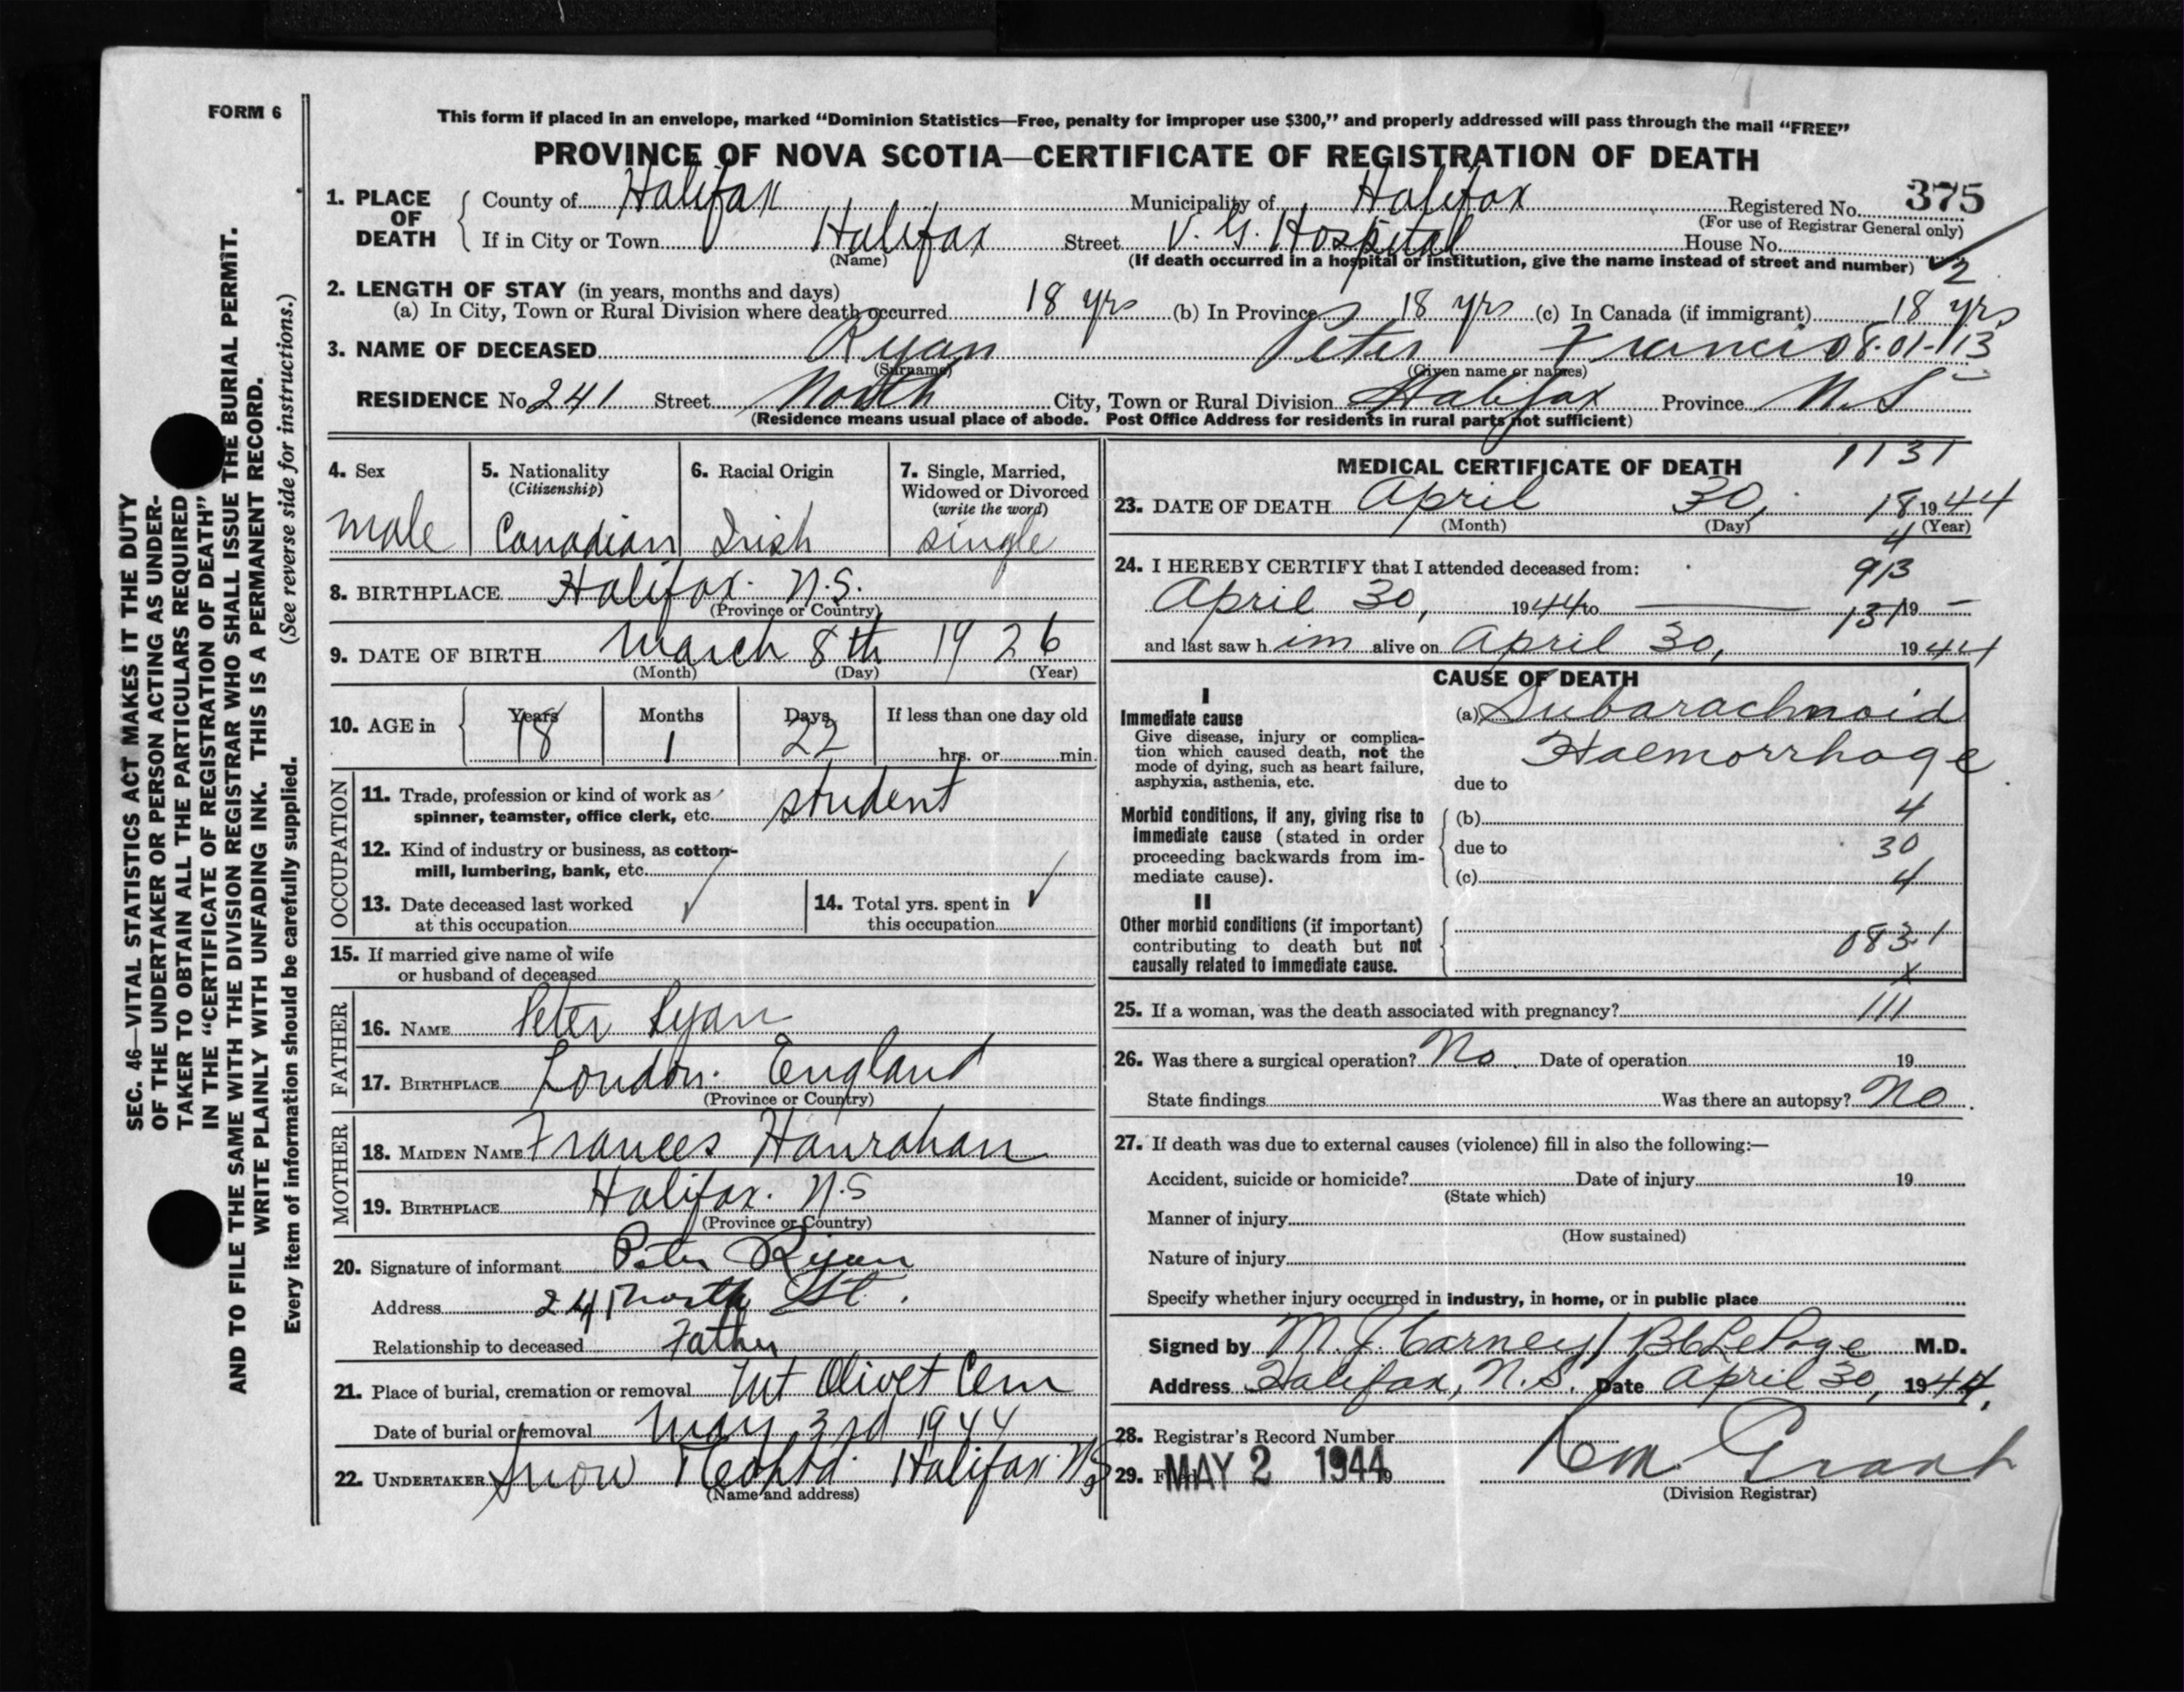 FORM 6
SEC. 46—VITAL STATISTICS ACT MAKES IT THE DUTY
OF THE UNDERTAKER OR PERSON ACTING AS UNDER-
TAKER TO OBTAIN ALL THE PARTICULARS REQUIRED
IN THE "CERTIFICATE OF REGISTRATION OF DEATH"
AND TO FILE THE SAME WITH THE DIVISION REGISTRAR WHO SHALL ISSUE THE BURIAL PERMIT.
WRITE PLAINLY WITH UNFADING INK. THIS IS A PERMANENT RECORD.
Every item of information should be carefully supplied. (See reverse side for instructions.)
This form if placed in an envelope, marked "Dominion Statistics—Free, penalty for improper use $300," and properly addressed will pass through the mail "FREE"
PROVINCE OF NOVA SCOTIA—CERTIFICATE OF REGISTRATION OF DEATH
1. PLACE OF DEATH County of Halifax Municipality of Halifax Registered No. 375
(For use of Registrar General only)
If in City or Town Halifax Street V. G. Hospital House No.
(Name) (If death occurred in a hospital or institution, give the name instead of street and number) 2
2. LENGTH OF STAY (in years, months and days)
(a) In City, Town or Rural Division where death occurred 18 yrs (b) In Province 18 yrs (c) In Canada (if immigrant) 18 yrs
3. NAME OF DECEASED Ryan Peter Francis 08-01-113
(Surname) (Given name or names)
RESIDENCE No. 241 Street North City, Town or Rural Division Halifax Province N.S
(Residence means usual place of abode. Post Office Address for residents in rural parts not sufficient)
4. Sex 5. Nationality 6. Racial Origin 7. Single, Married,
(Citizenship) Widowed or Divorced
(write the word)
male Canadian Irish single
8. BIRTHPLACE Halifax. N.S.
(Province or Country)
9. DATE OF BIRTH March 8th 1926
(Month) (Day) (Year)
10. AGE in Years Months Days If less than one day old
18 1 22 hrs. or min.
OCCUPATION
11. Trade, profession or kind of work as
spinner, teamster, office clerk, etc. student
12. Kind of industry or business, as cotton-
mill, lumbering, bank, etc.
13. Date deceased last worked 14. Total yrs. spent in
at this occupation this occupation
15. If married give name of wife
or husband of deceased
FATHER
16. NAME Peter Ryan
17. BIRTHPLACE London. England
(Province or Country)
MOTHER
18. MAIDEN NAME Frances Hanrahan
19. BIRTHPLACE Halifax. N.S
(Province or Country)
20. Signature of informant Peter Ryan
Address 241 North St.
Relationship to deceased Father
21. Place of burial, cremation or removal Mt Olivet Cem
Date of burial or removal May 3rd 1944
22. UNDERTAKER Snow Halifax NS
(Name and address)
MEDICAL CERTIFICATE OF DEATH 1131
23. DATE OF DEATH April 30, 18 1944
(Month) (Day) 4 (Year)
24. I HEREBY CERTIFY that I attended deceased from: 913
April 30, 1944 to — 131 19 —
and last saw him alive on April 30, 1944
CAUSE OF DEATH
I
Immediate cause (a) Subarachnoid
Give disease, injury or complica-
tion which caused death, not the Haemorrhage
mode of dying, such as heart failure,
asphyxia, asthenia, etc. due to
Morbid conditions, if any, giving rise to (b) 4
immediate cause (stated in order due to 30
proceeding backwards from im-
mediate cause). (c) 4
II
Other morbid conditions (if important)
contributing to death but not 083.1
causally related to immediate cause. X
25. If a woman, was the death associated with pregnancy? 111
26. Was there a surgical operation? No Date of operation 19
State findings Was there an autopsy? No.
27. If death was due to external causes (violence) fill in also the following:—
Accident, suicide or homicide? Date of injury 19
(State which)
Manner of injury
(How sustained)
Nature of injury
Specify whether injury occurred in industry, in home, or in public place
Signed by M. J. Carney / B C LePage M.D.
Address Halifax, N.S. Date April 30, 1944.
28. Registrar's Record Number
29. MAY 2 1944 Grant
(Division Registrar)